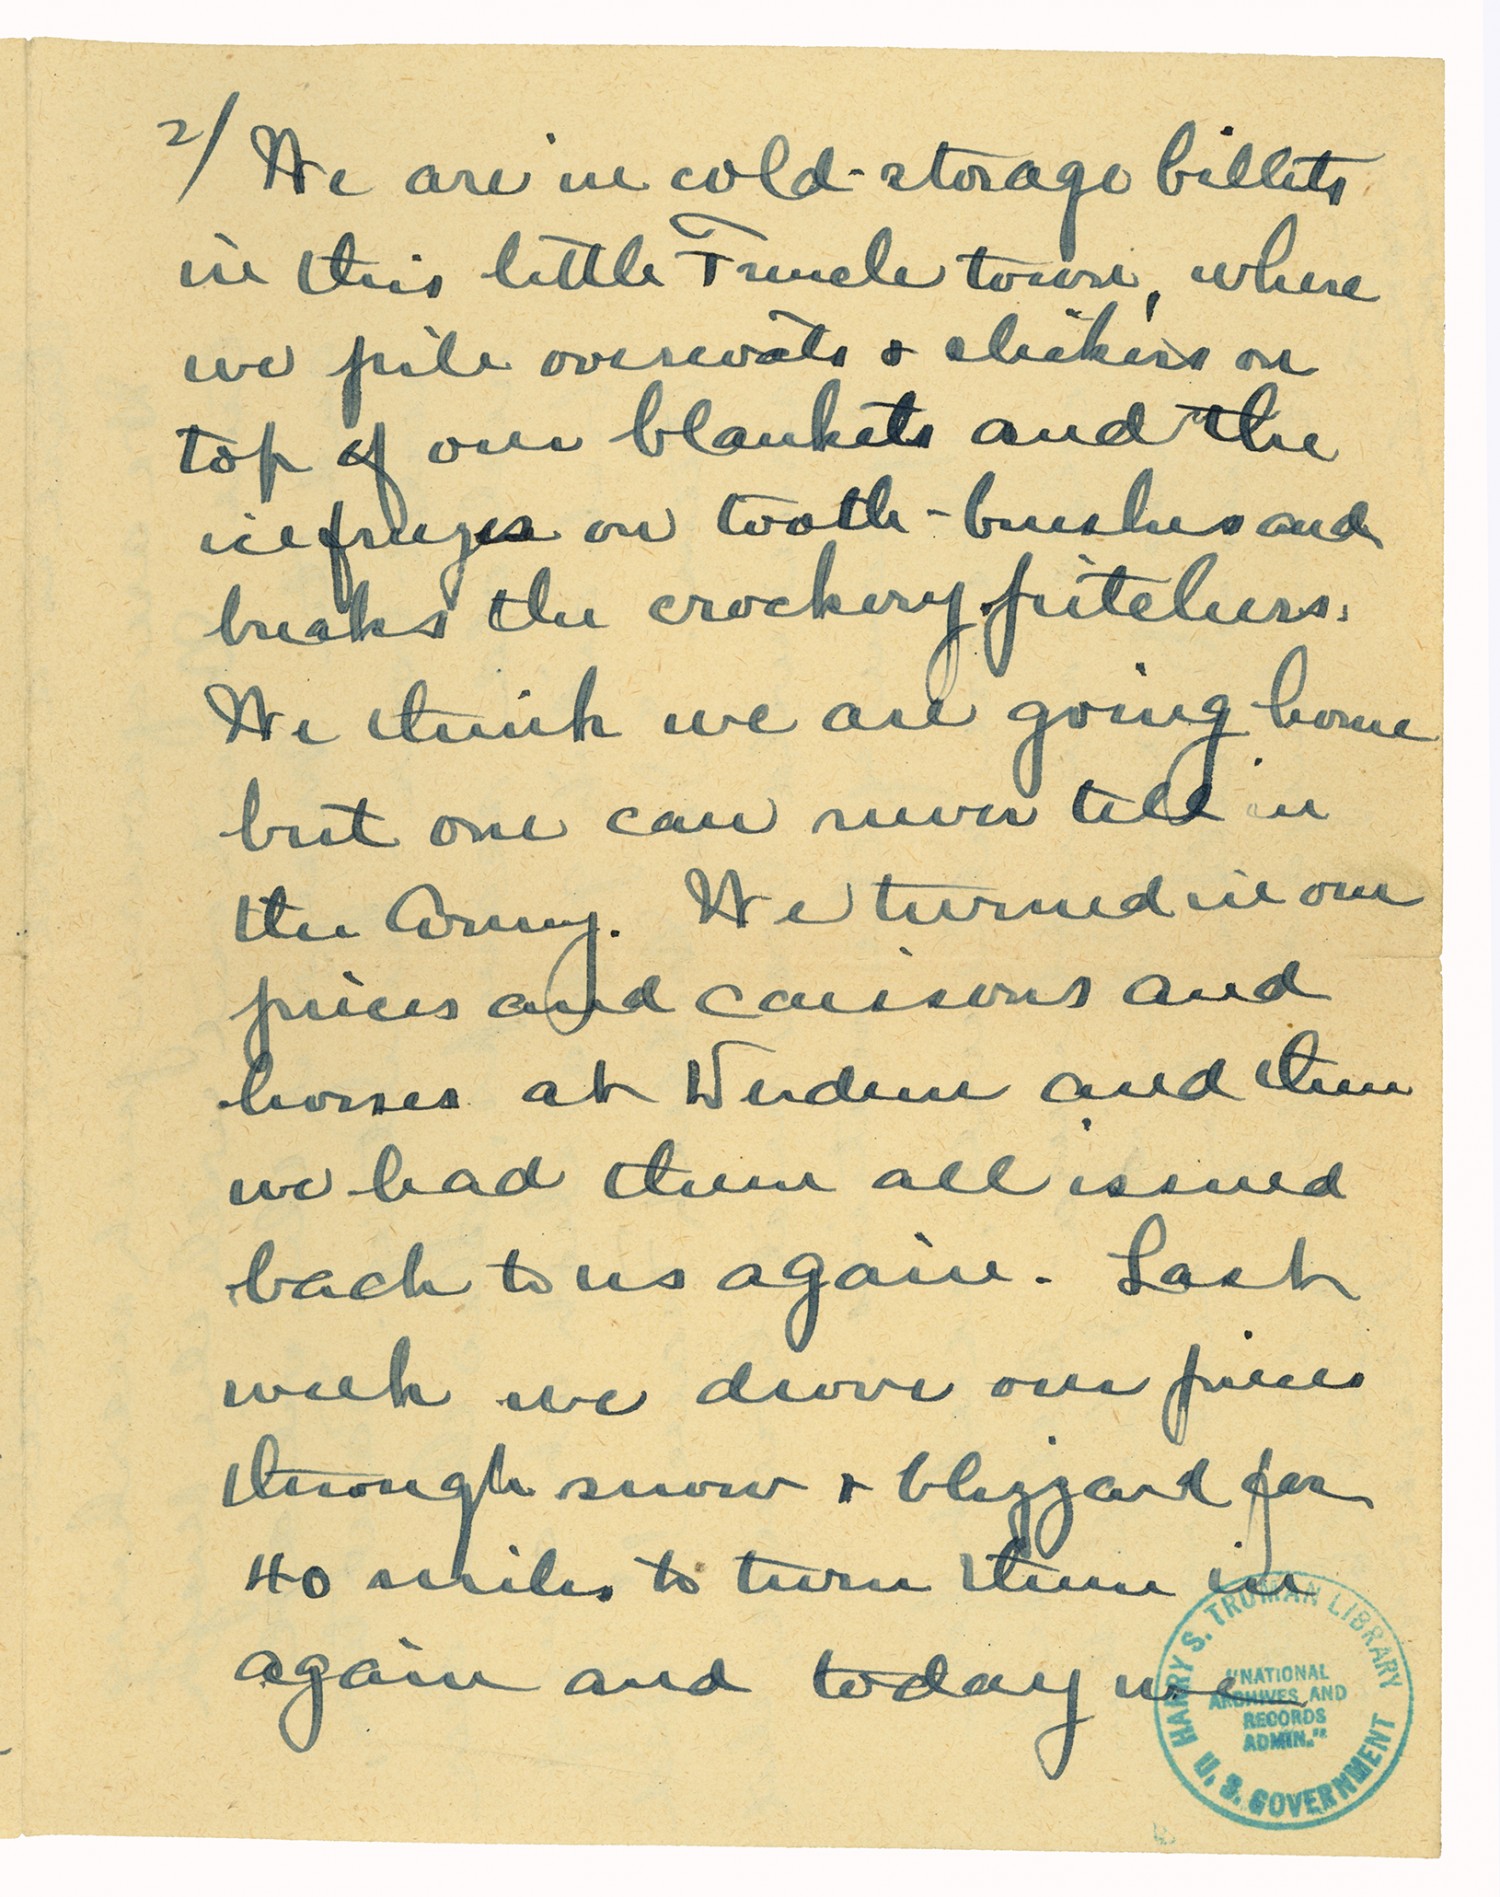 2/ We are in cold-storage billets
in this little French town, where
we pile overcoats + slickers on
top of our blankets and the
ice freezes on tooth-brushes and
breaks the crockery pitchers.
We think we are going home
but one can never tell in
the Army. We turned in our
pieces and caissons and
horses at Verdun and then
we had them all issued
back to us again. Last
week we drove our pieces
through snow + blizzard for
40 miles to turn them in
again and today we
HARRY S. TRUMAN LIBRARY
"NATIONAL
ARCHIVES AND
RECORDS
ADMIN."
U.S. GOVERNMENT